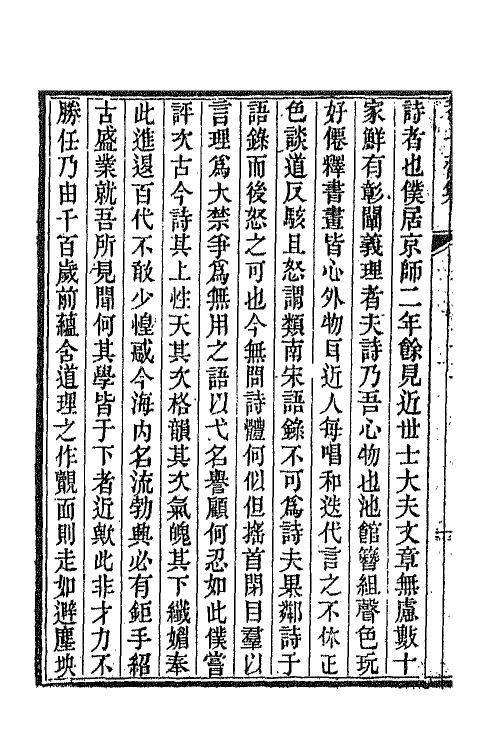 詩者也僕居京師二年餘見近世士大夫文章無慮數十
家鮮有彰闡義理者夫詩乃吾心物也池館簪組聲色玩
好僊釋書畫皆心外物耳近人每唱和迭代言之不休正
色談道反駭且怒謂類南宋語錄不可爲詩夫果鄰詩于
語錄而後怒之可也今無問詩體何似但搖首閉目羣以
言理爲大禁爭爲無用之語以弋名譽顧何忍如此僕嘗
評次古今詩其上性天其次格韻其次氣魄其下纖媚奉
此進退百代不敢少惶惑今海內名流勃興必有鉅手紹
古盛業就吾所見聞何其學皆于下者近歟此非才力不
勝任乃由千百歲前蘊含道理之作覿面則走如避塵坱